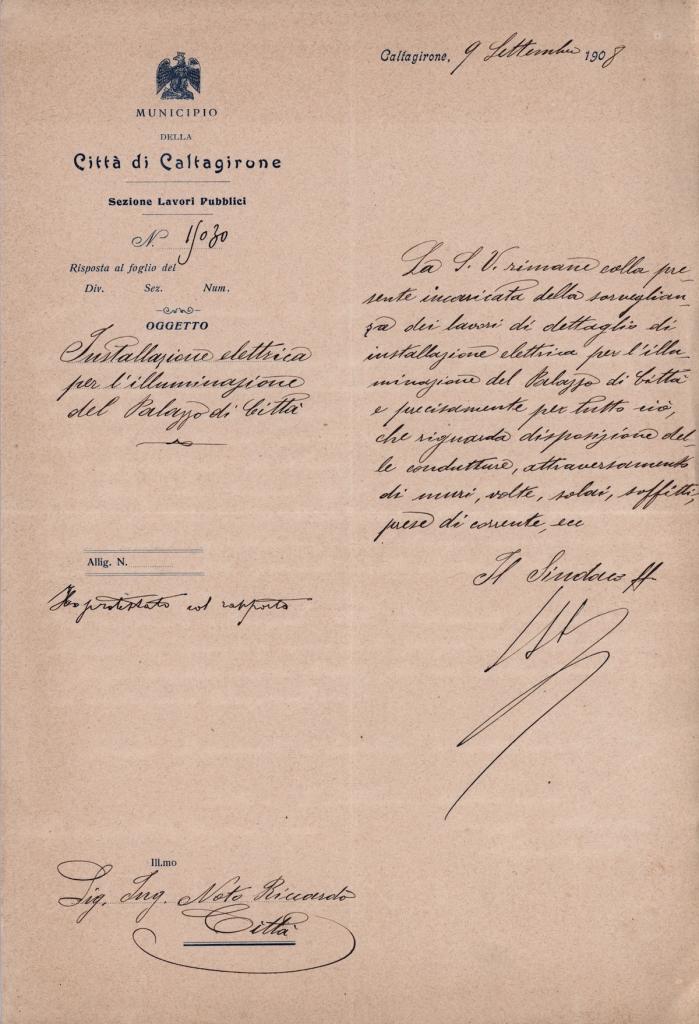 Caltagirone, 9 Settembre 1908
MUNICIPIO
DELLA
Città di Caltagirone
Sezione Lavori Pubblici
N. 15030
Risposta al foglio del
Div. Sez. Num.
OGGETTO
Installazione elettrica
per l'illuminazione
del Palazzo di Città
La S. V. rimane colla pre-
sente incaricata della sorveglian-
za dei lavori di dettaglio di
installazione elettrica per l'illu-
minazione del Palazzo di Città
e precisamente per tutto ciò,
che riguarda disposizione del-
le condutture, attraversamento
di muri, volte, solai, soffitti,
prese di corrente, ecc
Il Sindaco ff
Allig. N.
Ho protestato col rapporto
Ill.mo
Sig. Ing. Noto Riccardo
Città